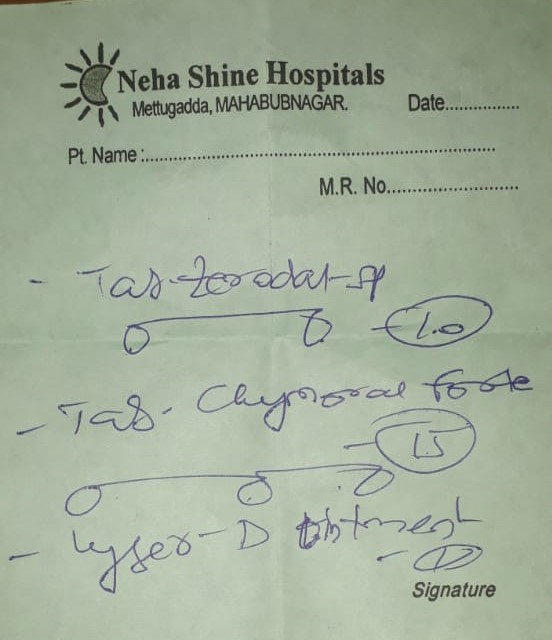 Neha Shine Hospitals
Mettugadda, MAHABUBNAGAR.
Date................
Pt. Name :................................................................................
M.R. No..............................
- Tab-Zerodal-sp
- 10
- Tab. Chymoral forte
- 15
- Lyser-D Ointment
- 1
Signature